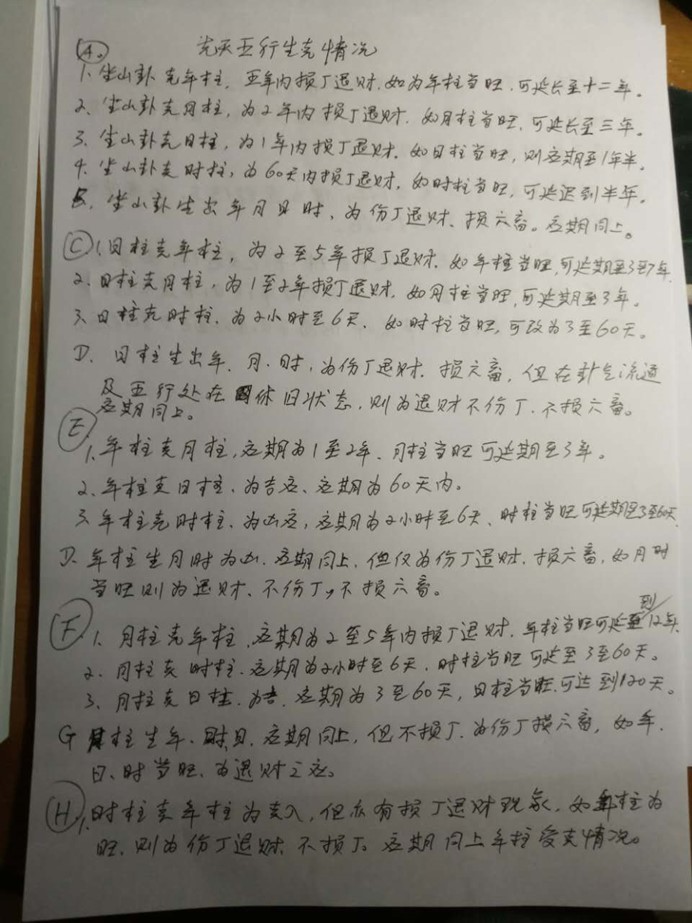 A. 先天五行生克情况
1. 坐山卦克年柱，五年内损丁退财，如为年柱当旺，可延长至十二年。
2. 坐山卦克月柱，为2年内损丁退财，如月柱当旺，可延长至三年。
3. 坐山卦克日柱，为1年内损丁退财，如日柱当旺，则应期至1年半。
4. 坐山卦克时柱，为60天内损丁退财，如时柱当旺，可延迟到半年。
B. 坐山卦生出年月日时，为伤丁退财、损六畜。应期同上。
C 1. 日柱克年柱，为2至5年损丁退财，如年柱当旺，可延期至3至7年。
2. 日柱克月柱，为1至2年损丁退财，如月柱当旺，可延期至3年。
3. 日柱克时柱，为2小时至6天，如时柱当旺，可改为3至60天。
D. 日柱生出年、月、时，为伤丁退财、损六畜，但在卦气流通
及五行处在休囚状态，则为退财不伤丁、不损六畜。
应期同上。
E
1. 年柱克月柱，应期为1至2年、月柱当旺可延期至3年。
2. 年柱克日柱，为吉应、应期为60天内。
3. 年柱克时柱，为凶应，应期为2小时至6天、时柱当旺可延期至3至60天
D. 年柱生月时为凶，应期同上，但仅为伤丁退财、损六畜，如月时
当旺则为退财、不伤丁，不损六畜。
F 1. 月柱克年柱，应期为2至5年内损丁退财，年柱当旺可延到12年。
2. 月柱克时柱，应期为2小时至6天，时柱当旺可延至3至60天。
3. 月柱克日柱，为吉，应期为3至60天，日柱当旺，可达到120天。
G 月柱生年、时日，应期同上，但不损丁，为伤丁损六畜，如年、
日、时当旺，为退财之应。
H 1. 时柱克年柱为克入，但亦有损丁退财现象，如年柱为
旺，则为伤丁退财，不损丁。应期同上年柱受克情况。